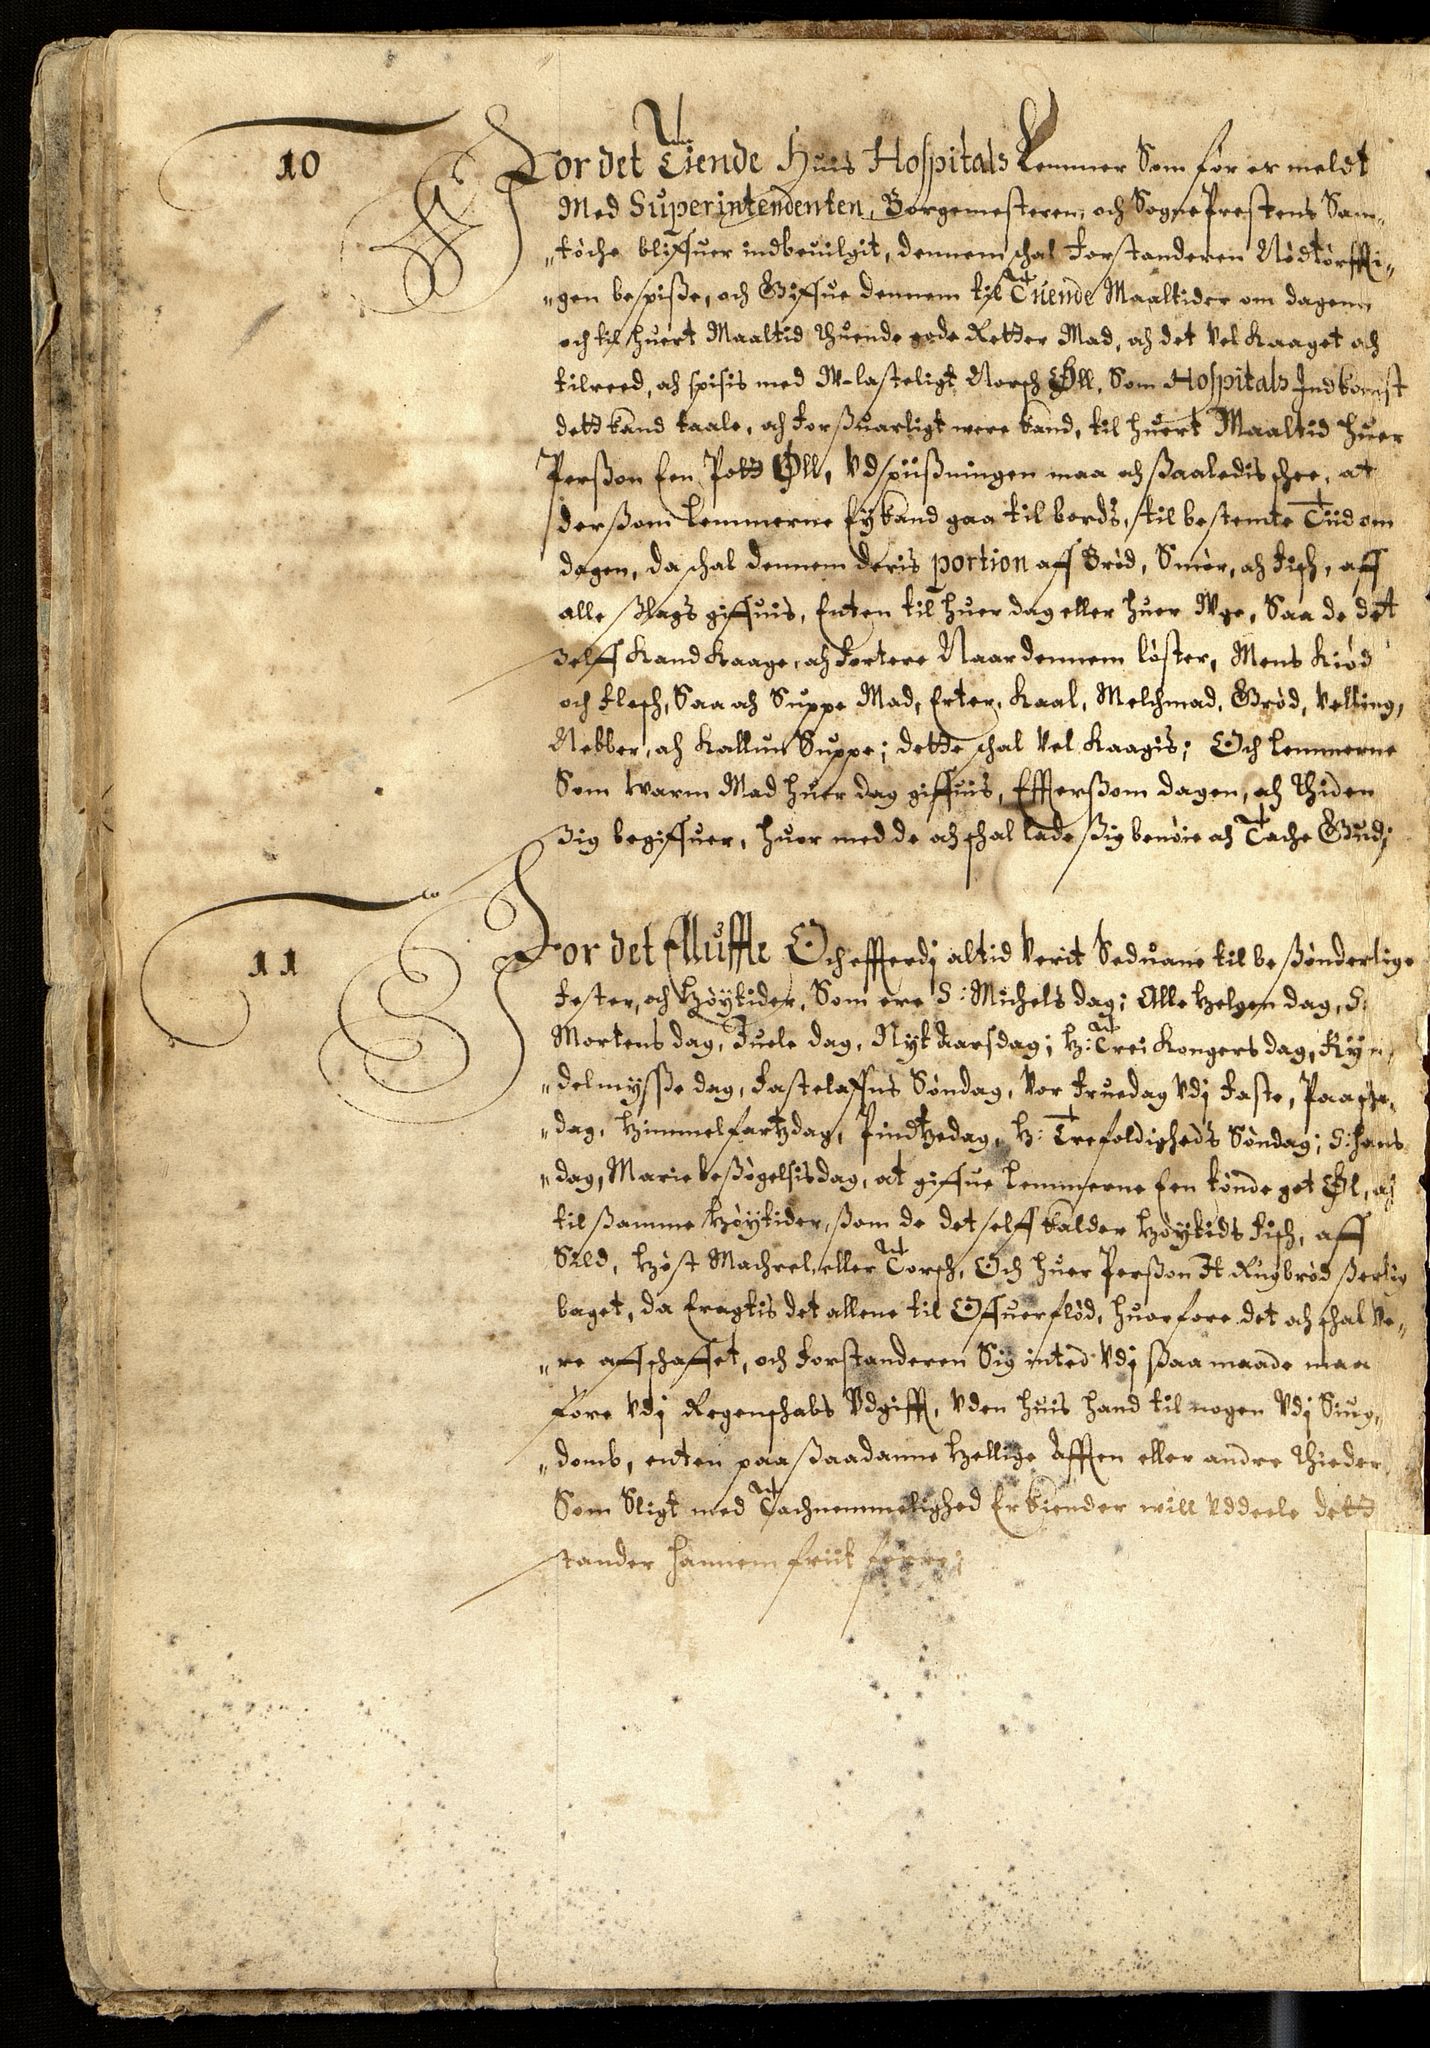 10
For det Tiende Huis Hospitals Lemmer Som før er meldt
Med Superintendenten, Borgemesteren, och Sogneprestens Sam„
„tøche bliffuer indbeuilgit, dennem schal Forstanderen Nødtørffti„
„gen bespiße, och Giffue dennem til Tuende Maaltider om dagenn
och til huert Maaltid thuende gode Retter Mad, och det Vel Kaaget och
tilreed, och spisis med W-lasteligt Norsch Øll, Som Hospitals Indkomst
dett kand taale, och forßuarligt were kand, til huert Maaltid huer
Perßon Een Pott Øll, Vdspiißningen maa och ßaaledis schee, at
derßom Lemmerne Ey kand gaa til bords, til bestemte Tiid om
dagen, da schal dennem deris portion aff Brød, Smør, och Fisch, aff
alle ßlags giffuis, Enten til huer dag eller huer Wge, Saa de det
Selff Kand Kaage, och fortere Naar dennem løster, Mens Kiød
och Flesch, Saa och Suppe Mad, Erter, Kaal, Melchmad, Grød, Velling,
Nebber, och Kallun Suppe; dette schal Vel Kaagis; Och Lemmerne
Som Warm Mad huer dag giffuis, Effterßom dagen, och Thiden
Sig begiffuer, huor med de och schal lade ßig benøie och Tache Gud;
11
For det Elluffte Och effterdj altid Verit Seduane til beßønderlige
Fester, och Høytider, Som ere S: Michels dag; Alle Helgen dag, S:
Mortens dag, Juele dag, Nyt Aarsdag; H: Trei Kongers dag, Kyn„
„delmysße dag, Fastelaffns Søndag, Vor Fruedag Vdj Faste, Paasche„
„dag, Himmelfartzdag, Pindtzedag, H: Trefoldigheds Søndag; S: Hans
„dag, Marie beßøgelsis dag, at giffue Lemmerne Een tønde got Øl, och
til ßamme Høytider, ßom de det selff kalder Høytids Fisch, aff
Sild, Høst Machrel, eller Torsch, Och huer Perßon It Rugbrød ßerlig
baget, da Eragtis det allene til Offuerflød, huorfore det och schal Ve„
„re affschaffet, och Forstanderen Sig inted Vdj ßaa maade maa
føre Vdj Regenschabs Vdgifft, Vden huis hand til nogen Vdj Siug„
„domb, enten paa ßaadanne Hellige Afften eller andre Thieder
Som Sligt med Tachnemmelighed Erkiender will Vddeele dett
stander hannem friit forre;